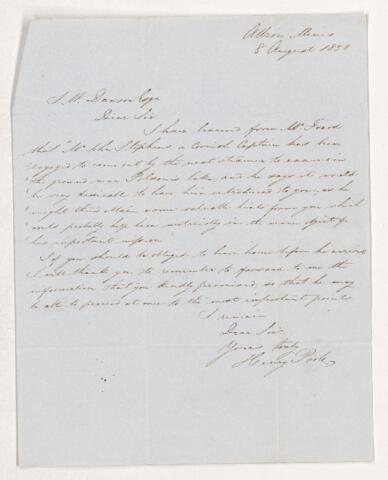 Albion Mines
8 August 1850
J. W. Dawson Esqr
Dear Sir
I have learned from Mr Foord
that "Mr John Stephens a Cornish Captain has been
"engaged to come out by the next steamer to examine
"the ground near Folsom's Lake, and he says it would
"be very desirable to have him introduced to you, as he
"might thus obtain some valuable hints from you which
"would probably help him materially in the main object of
"his important mission."
If you should be obliged to leave home before he arrives
I will thank you to remember to forward to me the
information that you kindly promised, so that he may
be able to proceed at once to the most important points
I remain
Dear Sir
Yours truly
Henry Poole